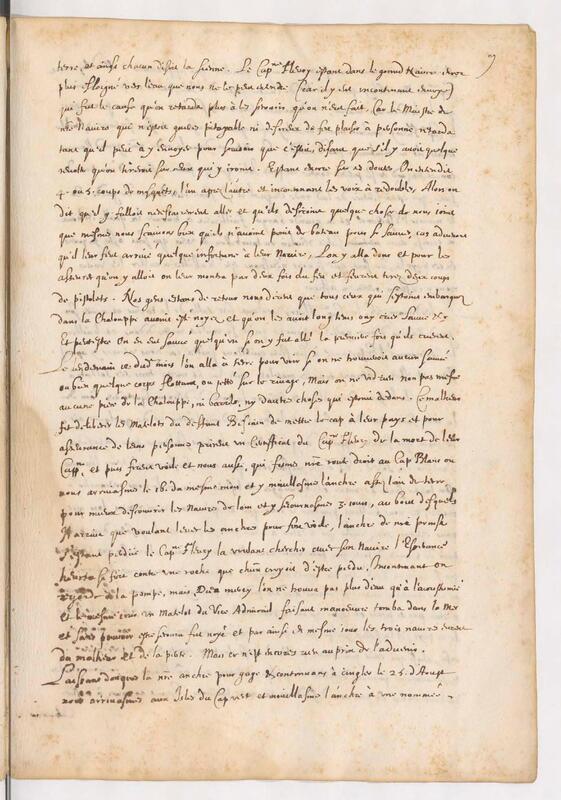 7
terre, et ainsi chacun disoit la sienne. Le Cap.ne Fleury estant dans le grand Navire
plus esloigné vers l'eau que nous ne le peut entendre (car il y eut incontinent envoyé)
qui fut la cause qu'on retarda plus à les secourir qu'on n'eust fait. Car le Maistre de
nre Navire qui n'estoit gueres pitoyable ni desireux de fre plaisir à personne retarda
tant qu'il peut à y envoyer pour sçavoir que c'estoit, disant que s'il y avoit quelque
revolte qu'on tireroit sur ceux qui y iroient. Estant encore sur ces doutes On entendit
4. ou 5. coups de musquets, l'un apres l'autre et incontinant les voix à redoubler. Alors on
dit qu'il y falloit necessairement aller et qu'ils desiroient quelque chose de nous
que mesme nous sçavions bien qu'ils n'avoient point de bateau pour se sauver, cas advenant
qu'il leur feust arrivé quelque infortune à leur Navire, L'on y alla donc et pour les
asseurer qu'on y alloit on leur monstra par deux fois du feu et feurent tirez deux coups
de pistolets. Nos gens estans de retour nous dirent que tous ceux qui s'estoient embarquez
dans la Chalouppe avoient esté noyez et qu'on les avoit long tems ouy crier
Et peut estre On en eut sauvé quelqu'un si on y fut allé la premiere fois qu'ils crierent.
Le lendemain de dud. mois l'on alla à terre pour voir si on ne trouveroit aucun sauvé
ou bien quelque corps flottant, ou jetté sur le rivage, Mais on ne vid rien non pas mesme
aucune piece de la Chalouppe, ni ny d'autre choses qui estoient dedans. Ce malheur
fit deliberer les Matelots du deffunt de mettre le cap à leur pays et pour
asseurance de leurs personnes prirent un Certifficat du Cap.ne Fleury de la mort de leur
Capp.ne et puis firent voile et nous aussi, qui fismes nre route droit au Cap Blanc ou
nous arrivasmes le 16. du mesme mois et y mouillasmes l'anchre assez loin de terre
pour mieux descouvrir les Navires de loin et y sejournasmes 3. jours, au bout desquels
il arriva que voulant lever les anchres pour fre voile, l'anchre de nre
s'estant perdue le Cap.ne Fleury la voulant chercher avec son Navire l'Esperance
heurta si fort contre une roche que chacun croyoit d'estre perdu. Incontinant on
regarde à la pompe, mais, Dieu mercy l'on ne trouva pas plus d'eau qu'à l'accoustumée
et le mesme jour un Matelot du Vice Admiral faisant manoeuvre tomba dans la Mer
et sans pouvoir estre secouru fut noyé et par ainsi en mesme jour les trois navires eurent
du malheur et de la perte. Mais ce n'est encores rien au prix de l'advenir.
Laissans donques la nre anchre pour gage & continuans à cingler le 25. d'Aoust
nous arrivasmes aux Isles du Cap vert et mouillasmes l'anchre à une nommée